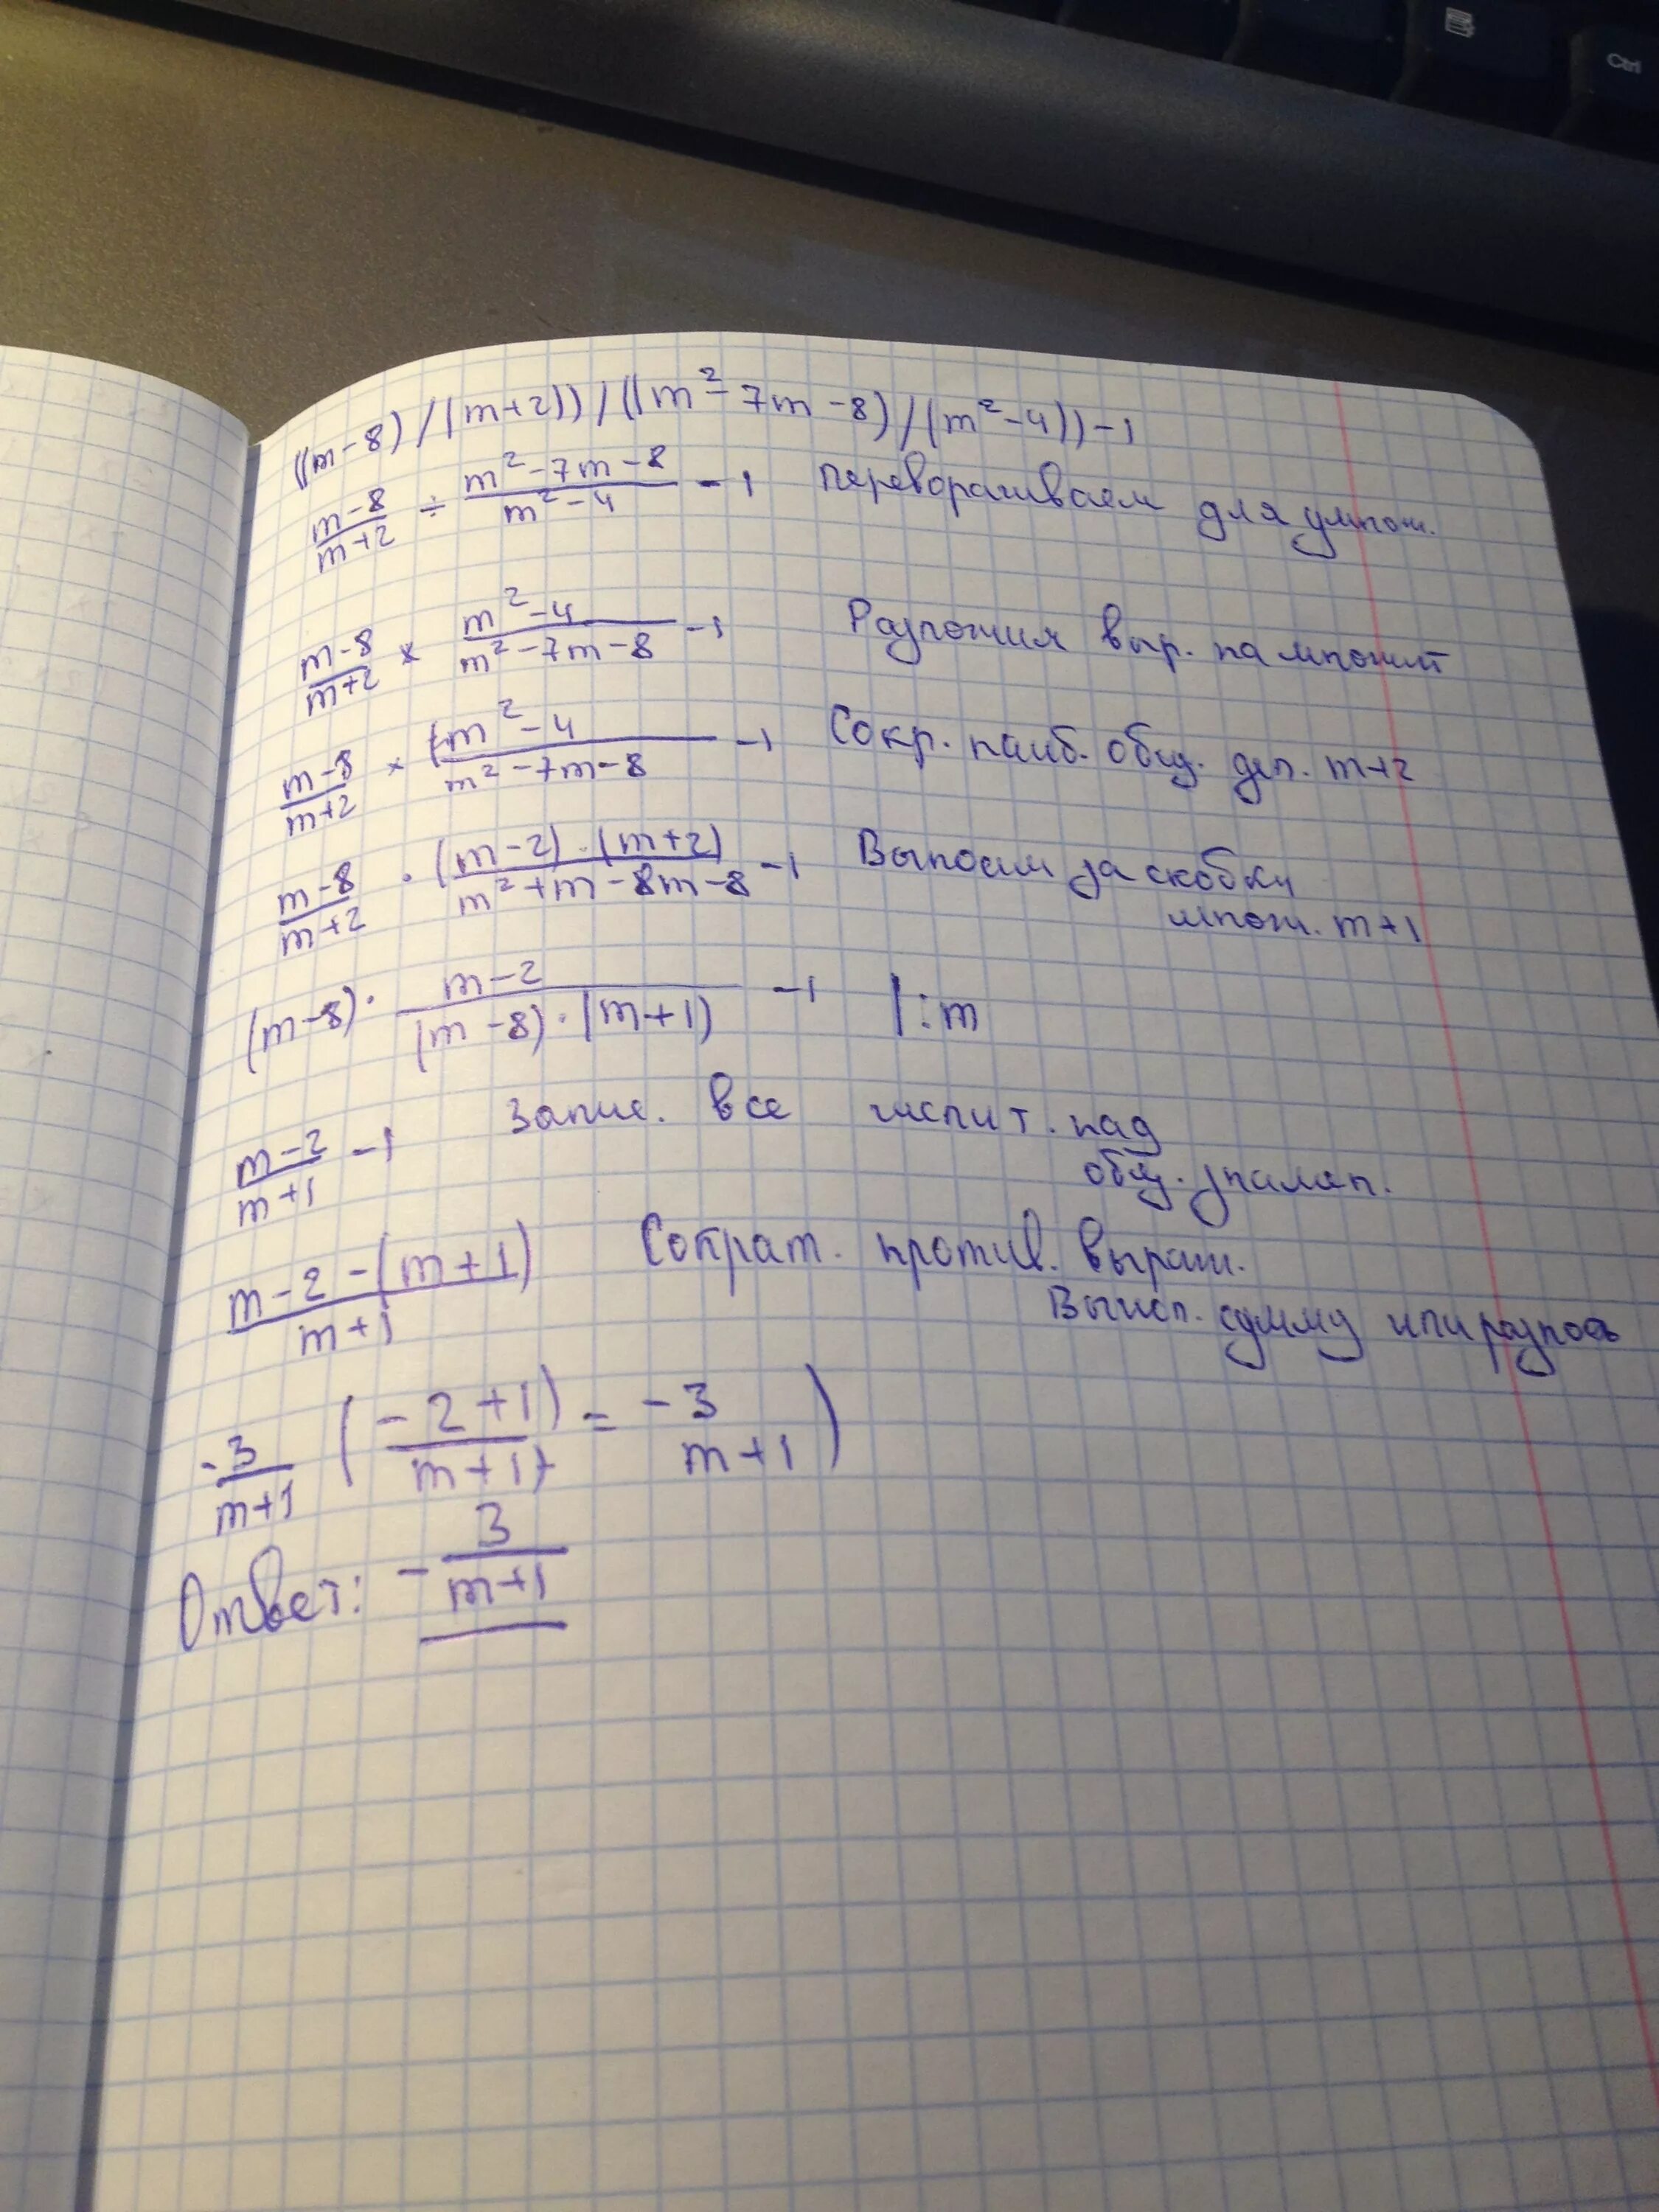 ((m-8)/(m+2))/((m²-7m-8)/(m²-4))-1
m-8/m+2 ÷ m²-7m-8/m²-4 -1 переворачиваем для умнож.
m-8/m+2 × m²-4/m²-7m-8 -1 Разложим выр. на множит
m-8/m+2 × (m²-4/m²-7m-8 -1 Сокр. наиб. общ. дел. m+2
m-8/m+2 · (m-2)·(m+2)/m²+m-8m-8 -1 Выносим за скобки
множ. m+1
(m-8)· m-2/(m-8)·(m+1) -1 |:m
m-2/m+1 -1 Запис. все числит. над
общ. знамен.
m-2-(m+1)/m+1 Сократ. против. выраж.
Вычисл. сумму или разность
-3/m+1 (-2+1)/m+1) = -3 m+1)
Ответ: - 3/m+1
Ctrl